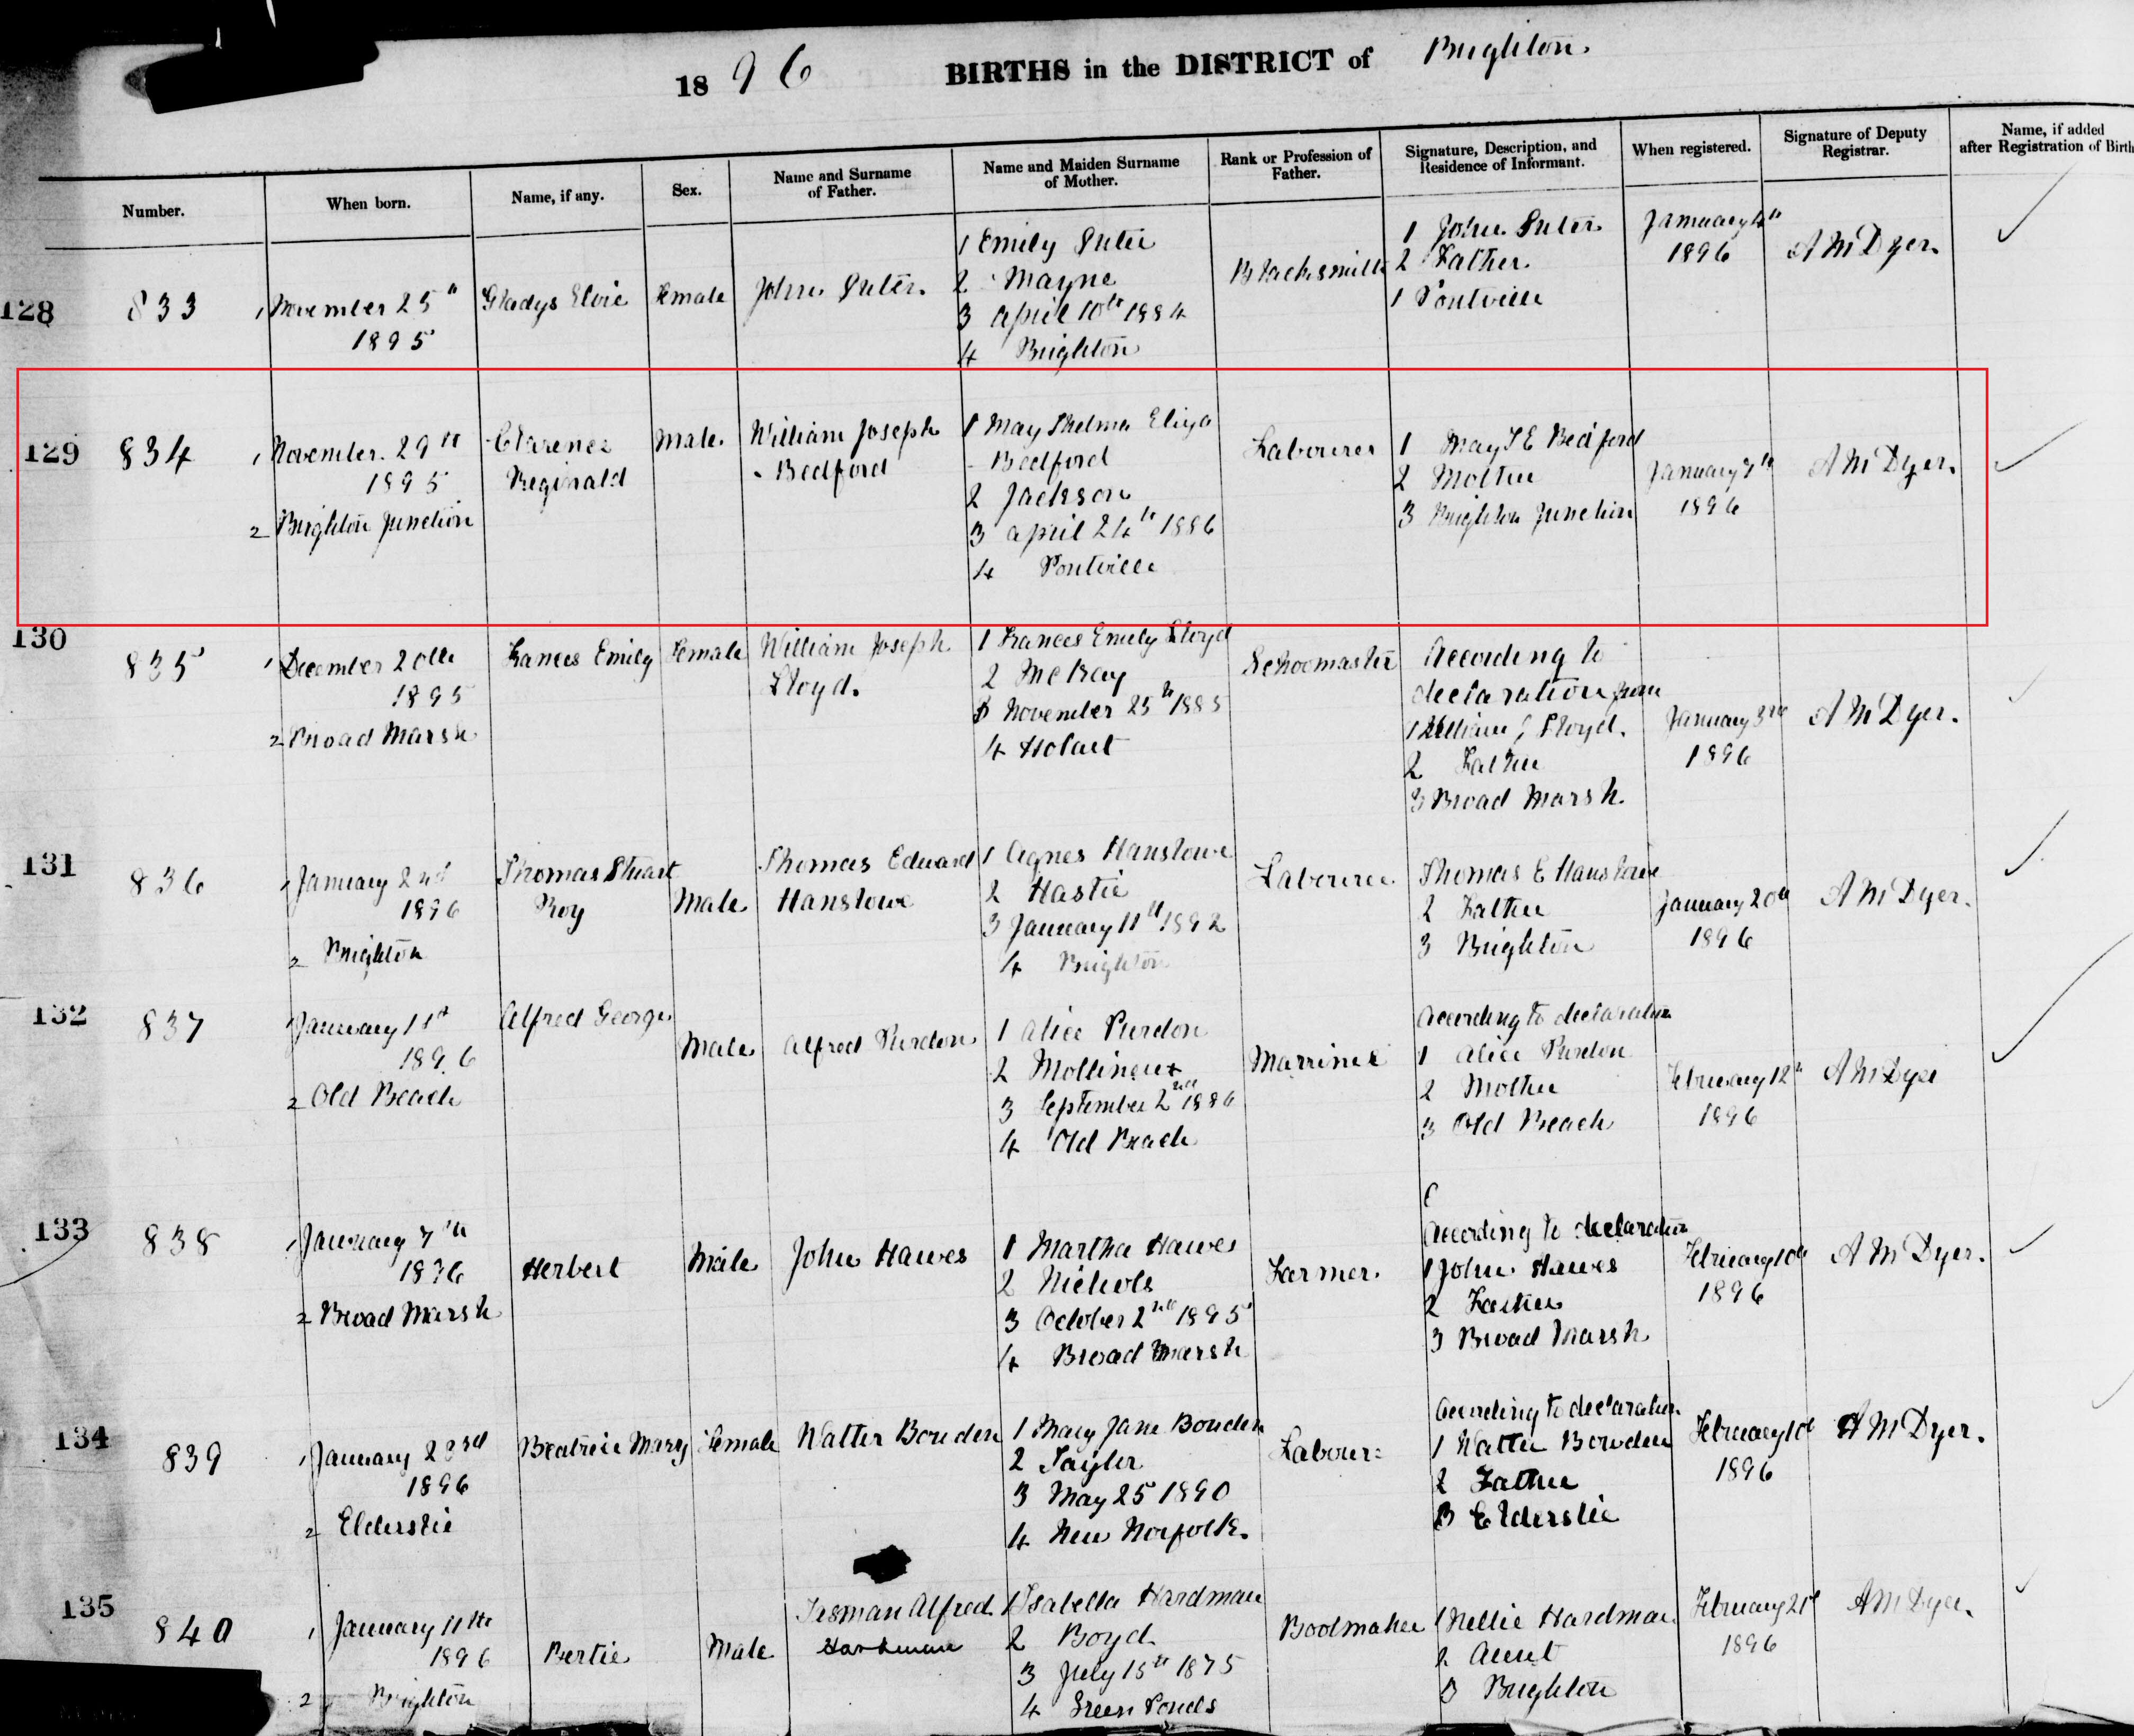 1896 BIRTHS in the DISTRICT of Brighton.
Number.
When born.
Name, if any.
Sex.
Name and Surname
of Father.
Name and Maiden Surname
of Mother.
Rank or Profession of
Father.
Signature, Description, and
Residence of Informant.
When registered.
Signature of Deputy
Registrar.
Name, if added
after Registration of Birth
128
833
1 November 25th
1895
Gladys Elvie
Female
John Suter.
1 Emily Suter
2 Mayne
3 April 10th 1884
4 Brighton
Blacksmith
1 John Suter
2 Father
1 Pontville
January
1896
A M Dyer.
129
834
1 November 29th
1895
2 Brighton Junction
Clarence
Reginald
Male
William Joseph
Bedford
1 May Thelma Eliza
Bedford
2 Jackson
3 April 24th 1886
4 Pontville
Labourer
1 May T E Bedford
2 Mother
3 Brighton Junction
January 7th
1896
A M Dyer.
130
835
1 December 20th
1895
2 Broad Marsh
Frances Emily
Female
William Joseph
Lloyd.
1 Frances Emily Lloyd
2 McKay
3 November 25th 1885
4 Hobart
Schoomaster
According to
declaration from
1 William J Lloyd.
2 Father
3 Broad Marsh.
January 3rd
1896
A M Dyer.
131
836
1 January 2nd
1896
2 Brighton
Thomas Stuart
Roy
Male
Thomas Edward
Hanslowe
1 Agnes Hanslowe
2 Hastie
3 January 11th 1892
4 Brighton
Labourer
Thomas E Hanslowe
2 Father
3 Brighton
January 20th
1896
A M Dyer.
132
837
1 January 11th
1896
2 Old Beach
Alfred George
Male
Alfred Purdon
1 Alice Purdon
2 Mollineux
3 September 2nd 1886
4 Old Beach
Marriner
According to declaration
1 Alice Purdon
2 Mother
3 Old Beach
February 12th
1896
A M Dyer
133
838
1 January 7th
1896
2 Broad Marsh
Herbert
Male
John Hawes
1 Martha Hawes
2 Nichols
3 October 2nd 1895
4 Broad Marsh
Farmer.
According to declaration
1 John Hawes
2 Father
3 Broad Marsh
February 10th
1896
A M Dyer.
134
839
1 January 23rd
1896
2 Elderslie
Beatrice Mary
Female
Walter Bowden
1 Mary Jane Bowden
2 Tayler
3 May 25 1890
4 New Norfolk.
Labour:
According to declaration
1 Walter Bowden
2 Father
3 Elderslie
February 10th
1896
A M Dyer.
135
840
1 January 11th
1896
2 Brighton
Bertie
Male
Tasman Alfred
Hardman
1 Isabella Hardman
2 Boyd
3 July 15th 1875
4 Green Ponds
Bootmaker
1 Nellie Hardman
2 Aunt
3 Brighton
February 21st
1896
A M Dyer.